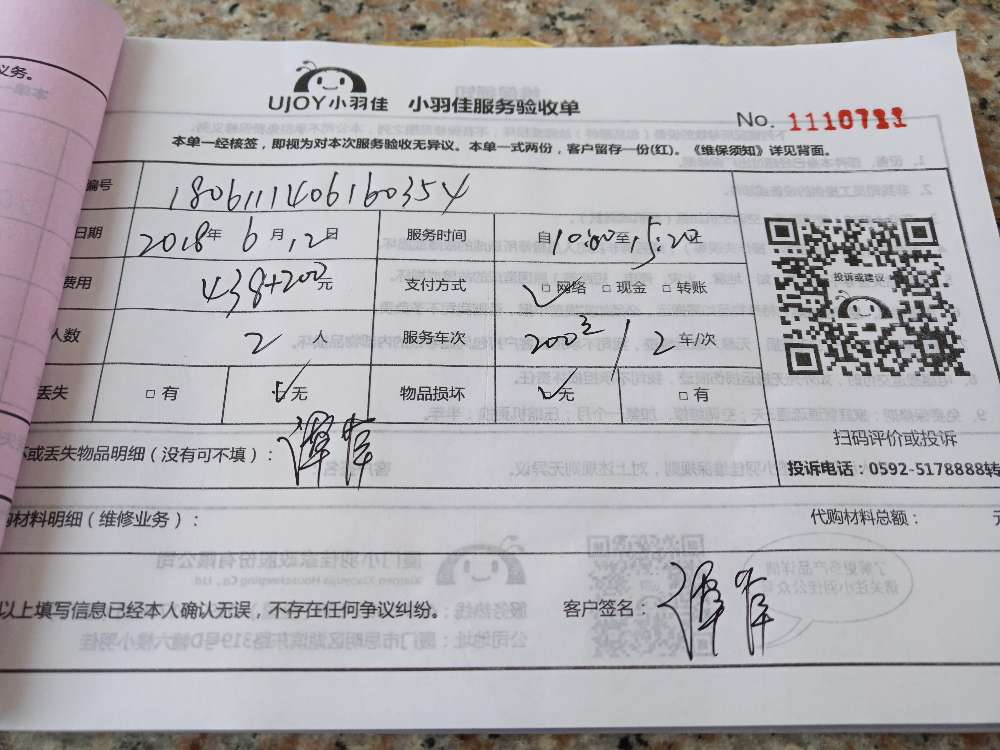 义务。
UJOY小羽佳 小羽佳服务验收单
No. 1110711
本单一经核签，即视为对本次服务验收无异议。本单一式两份，客户留存一份(红)。《维保须知》详见背面。
编号 1806111406160354
日期 2018年 6月 12日 服务时间 自10:00至15:20
费用 438+200元 支付方式 □网络 □现金 □转账
投诉或建议
人数 2 人 服务车次 200元/2车/次
丢失 □有 □无 物品损坏 □无 □有
扫码评价或投诉
坏或丢失物品明细（没有可不填）：
投诉电话：0592-5178888转
购材料明细（维修业务）： 代购材料总额： 元
以上填写信息已经本人确认无误，不存在任何争议纠纷。 客户签名：